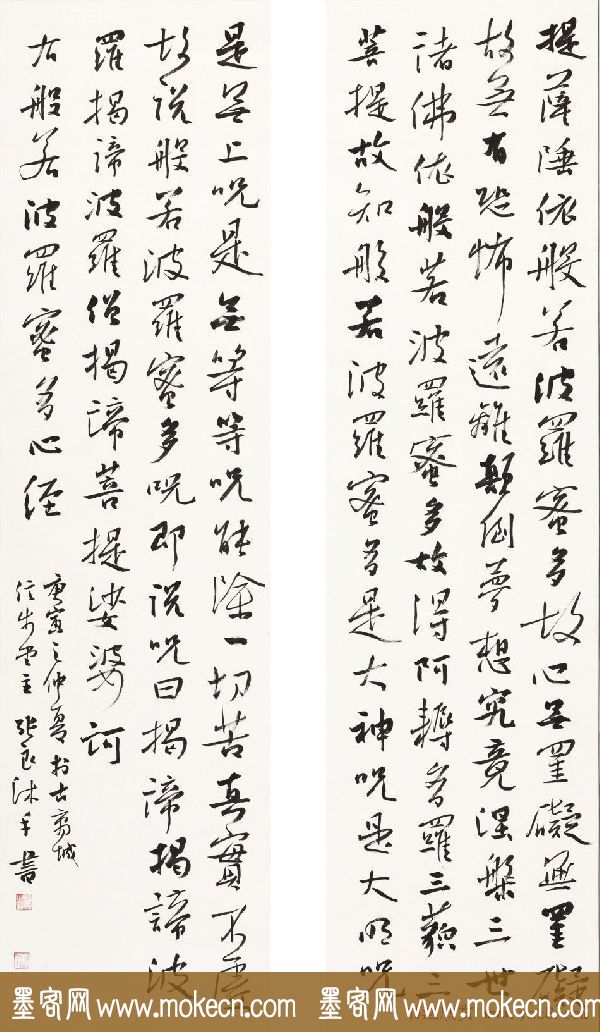 提薩埵依般若波羅蜜多故心無罣礙無罣礙
故無有恐怖遠離顛倒夢想究竟涅槃三世
諸佛依般若波羅蜜多故得阿耨多羅三藐三
菩提故知般若波羅蜜多是大神咒是大明咒
是無上咒是無等等咒能除一切苦真實不虛
故說般若波羅蜜多咒即說咒曰揭諦揭諦波
羅揭諦波羅僧揭諦菩提娑婆訶
右般若波羅蜜多心經
庚寅之仲夏於古商城
張良沐手書
墨客网 www.mokecn.com 墨客网 www.mokecn.com